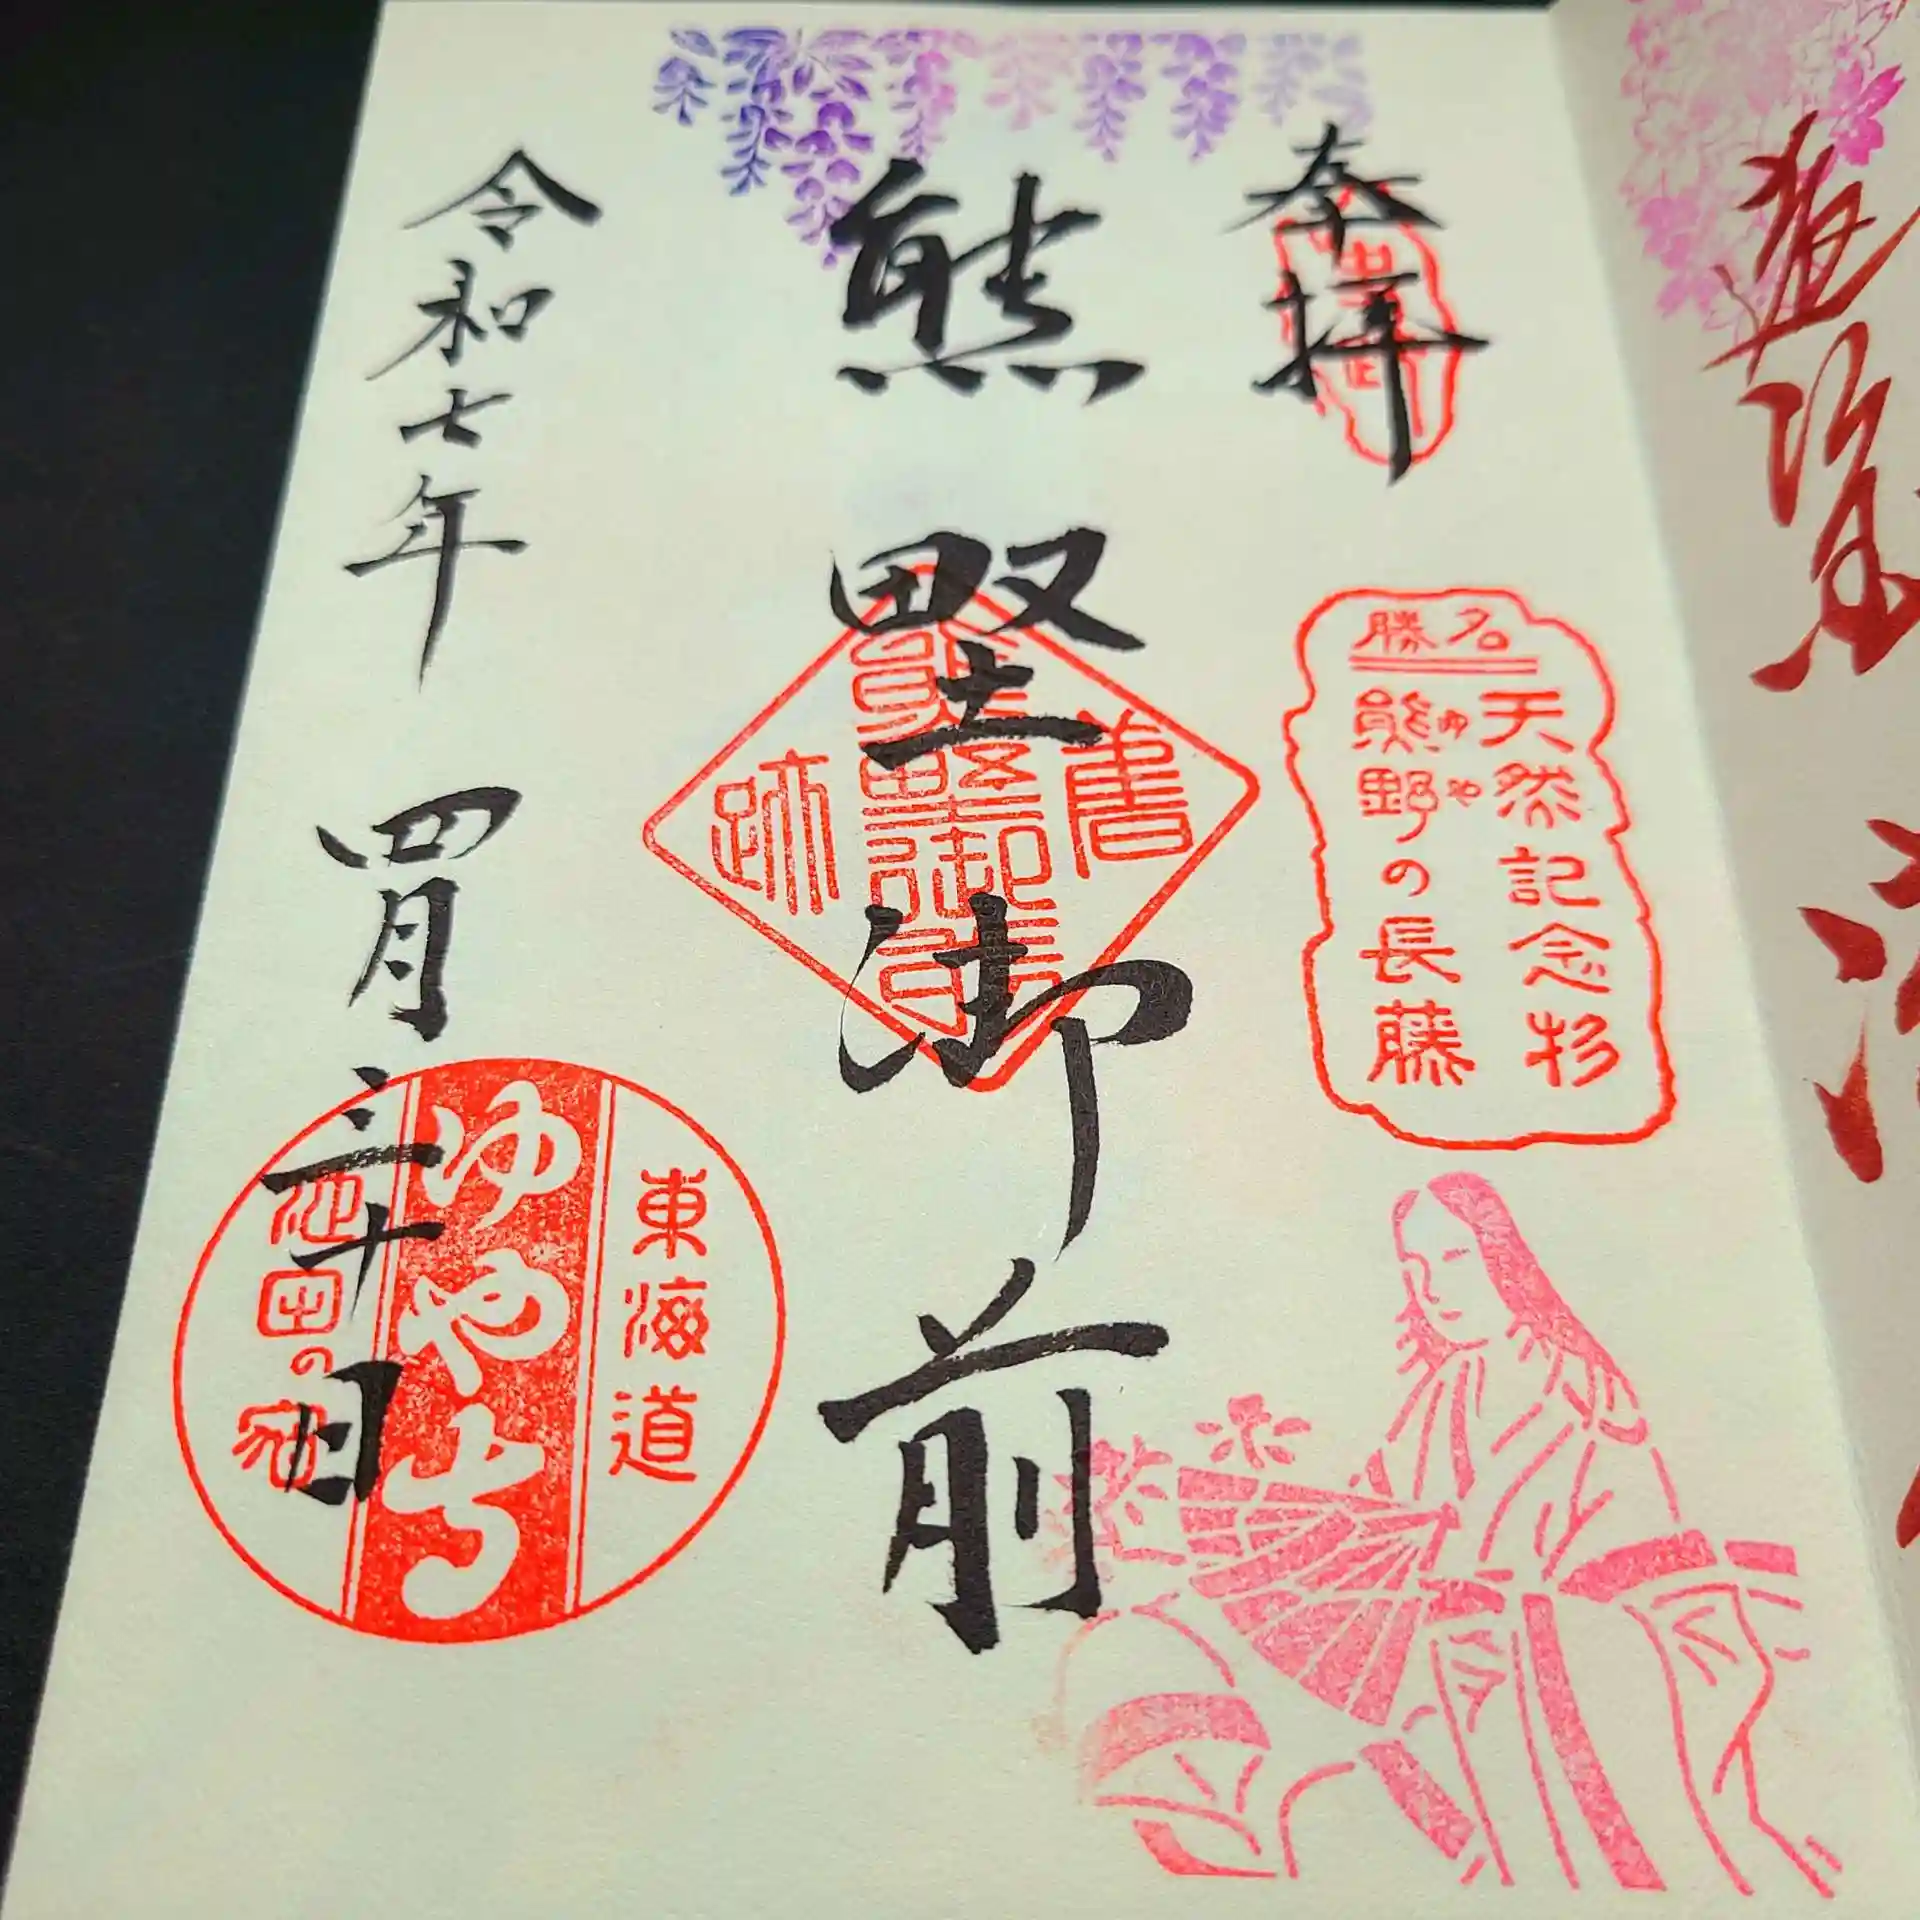 奉拝
名勝
天然記念杉
熊野の長藤
ゆや
熊野御前
舊
熊野御前
跡
令和七年 四月三十日
東海道
ゆや寺
池田の宿